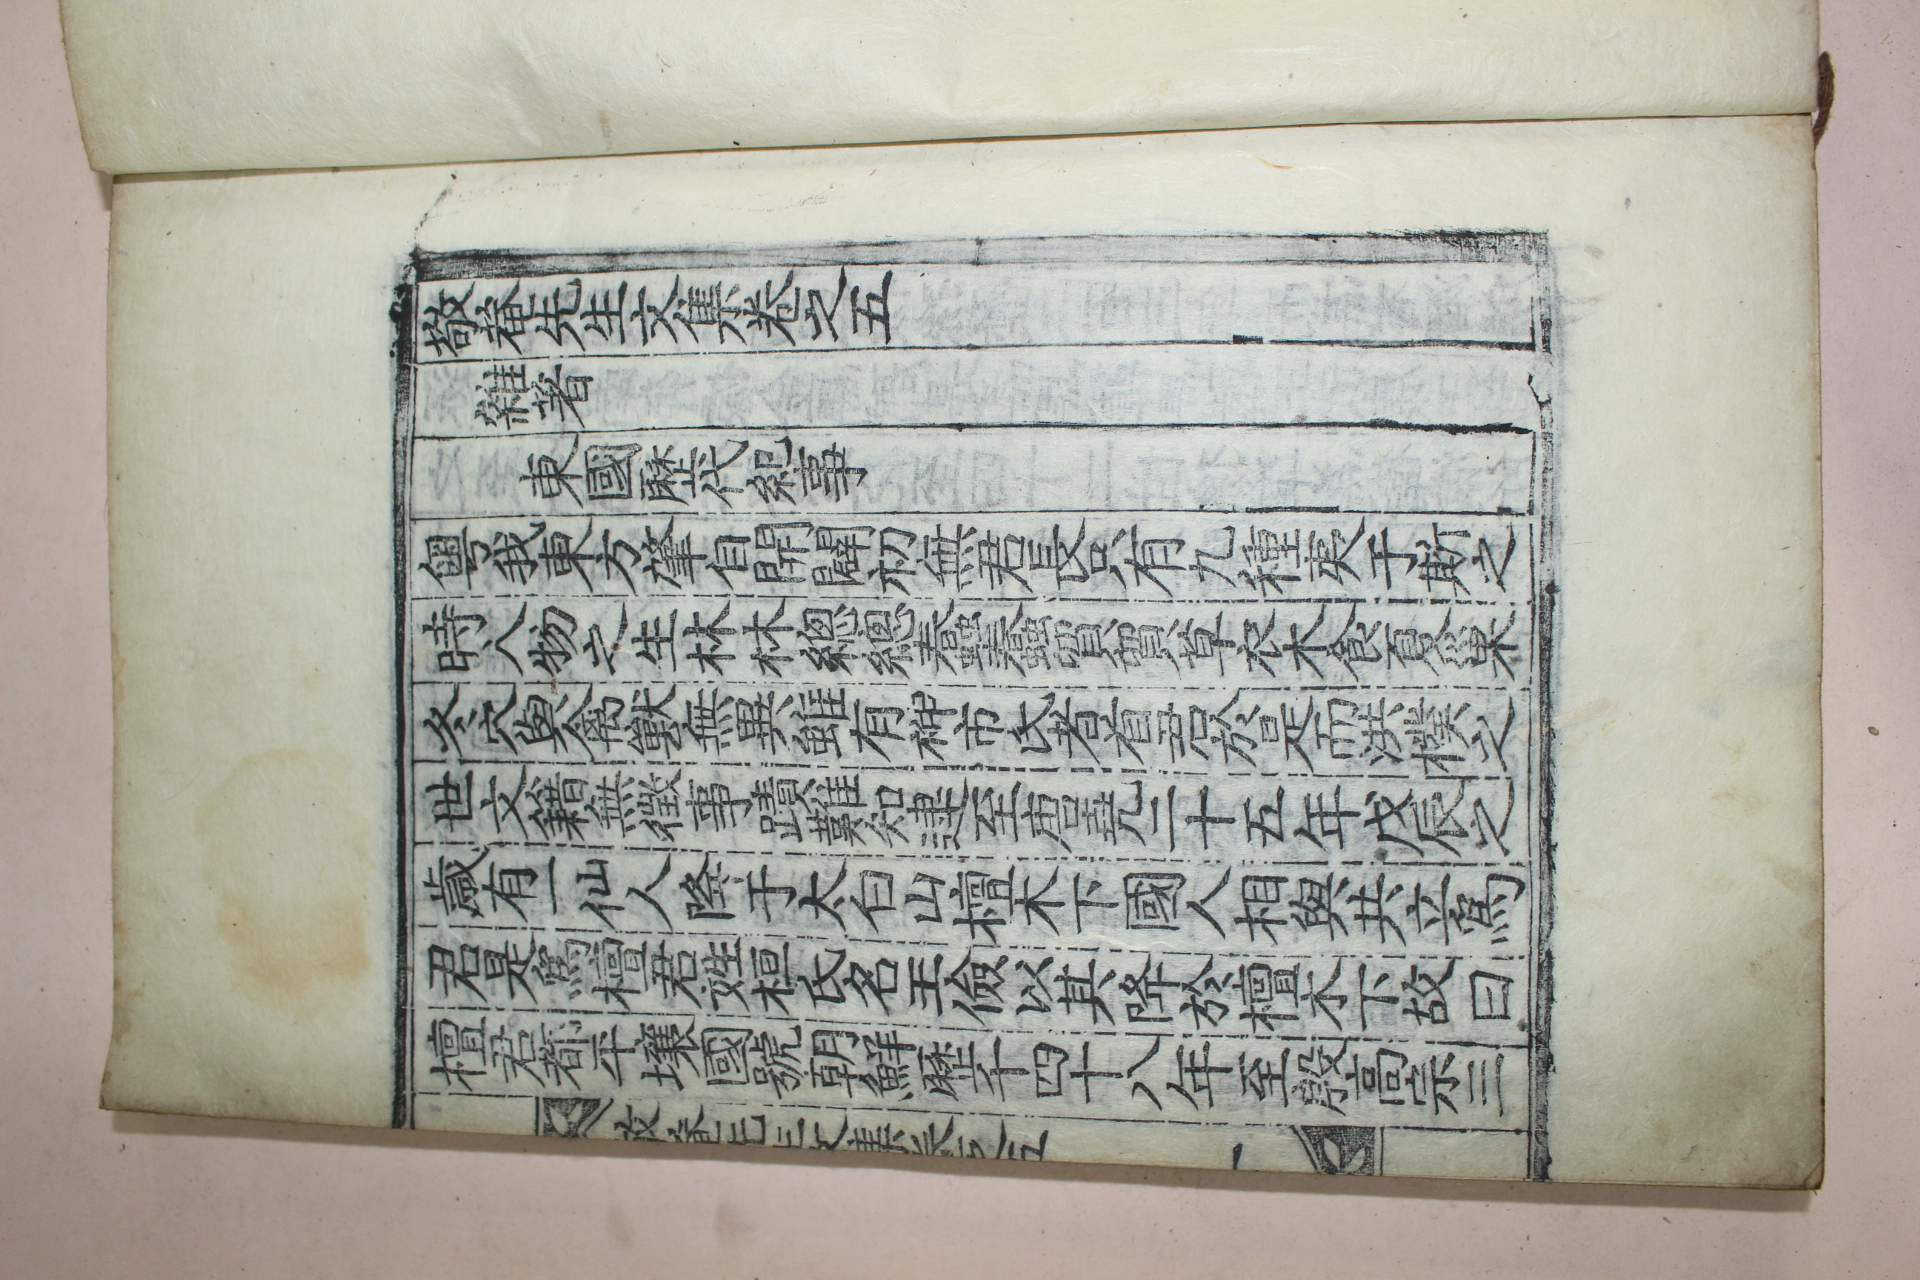 敬菴先生文集卷之五
雜著
東國歷代紀事
粤我東方肇自開闢初無君長只有九種夷于斯之
時人物之生林林總總蠢蠢蠢蠢貿貿草衣木食夏巢
冬穴與禽獸無異雖有神市氏者首君於是而洪樸之
世文籍無徵事蹟難知逮至唐堯二十五年戊辰之
歲有一仙人降于太白山檀木下國人相與共立爲
君是爲檀君姓桓氏名王儉以其降於檀木下故曰
檀君都平壤國號朝鮮歷千四十八年至殷高宗三